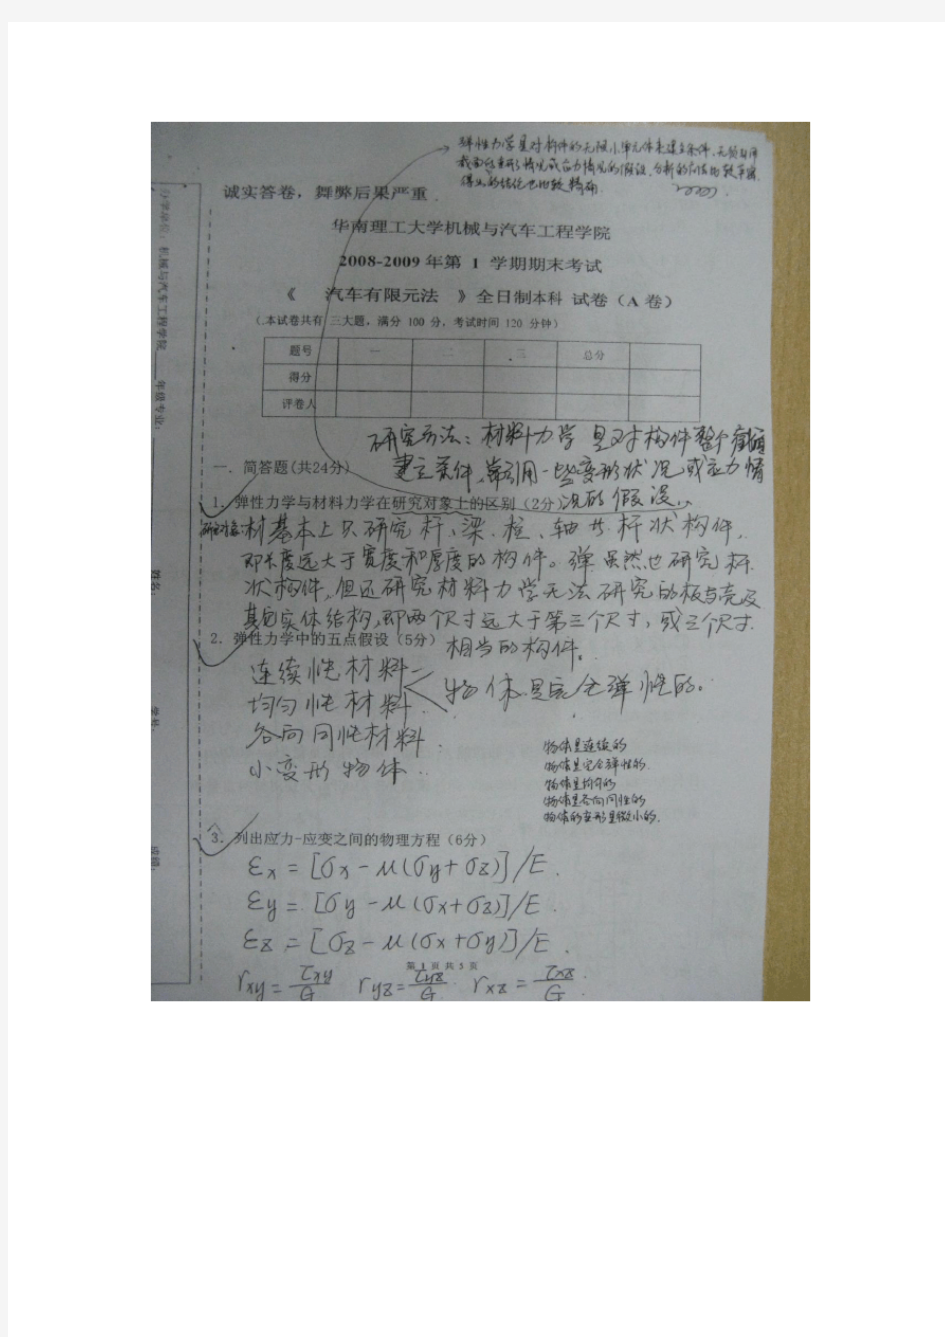 弹性力学是对构件的无限小单元体来建立条件,无须
变形情况或应力情况的假设,分析的方法比较严密
得出的结论也比较精确
诚实答卷,舞弊后果严重
华南理工大学机械与汽车工程学院
2008-2009年第 1 学期期末考试
《 汽车有限元法 》全日制本科 试卷(A 卷)
(本试卷共有 三大题,满分 100 分,考试时间 120 分钟)
题号 一 二 三 总分
得分
评卷人
研究方法:材料力学是对构件整个截面
建立条件,常引用一些变形状况或应力情
一. 简答题(共24分)
1. 弹性力学与材料力学在研究对象上的区别(2分) 况的假设,
研究对象:材基本上只研究杆、梁、柱、轴井杆状构件,
即长度远大于宽度和厚度的构件。弹虽然也研究杆
状构件,但还研究材料力学无法研究的板与壳及
其它实体结构,即两个尺寸远大于第三个尺寸,或三个尺寸
2. 弹性力学中的五点假设(5分) 相当的构件。
连续性材料
均匀性材料 物体是完全弹性的。
各向同性材料
小变形物体
物体是连续的
物体是完全弹性的
物体是均匀的
物体是各向同性的
物体的变形是微小的.
3. 列出应力-应变之间的物理方程(6分)
εx = [σx - μ(σy + σz)]/E.
εy = [σy - μ(σx+σz)]/E.
εz = [σz - μ(σx+σy)]/E.
第 1 页 共 5 页
rxy = τxy/G ryz = τyz/G rxz = τxz/G.
办学单位:机械与汽车工程学院 年级专业:
姓名
学号
成绩